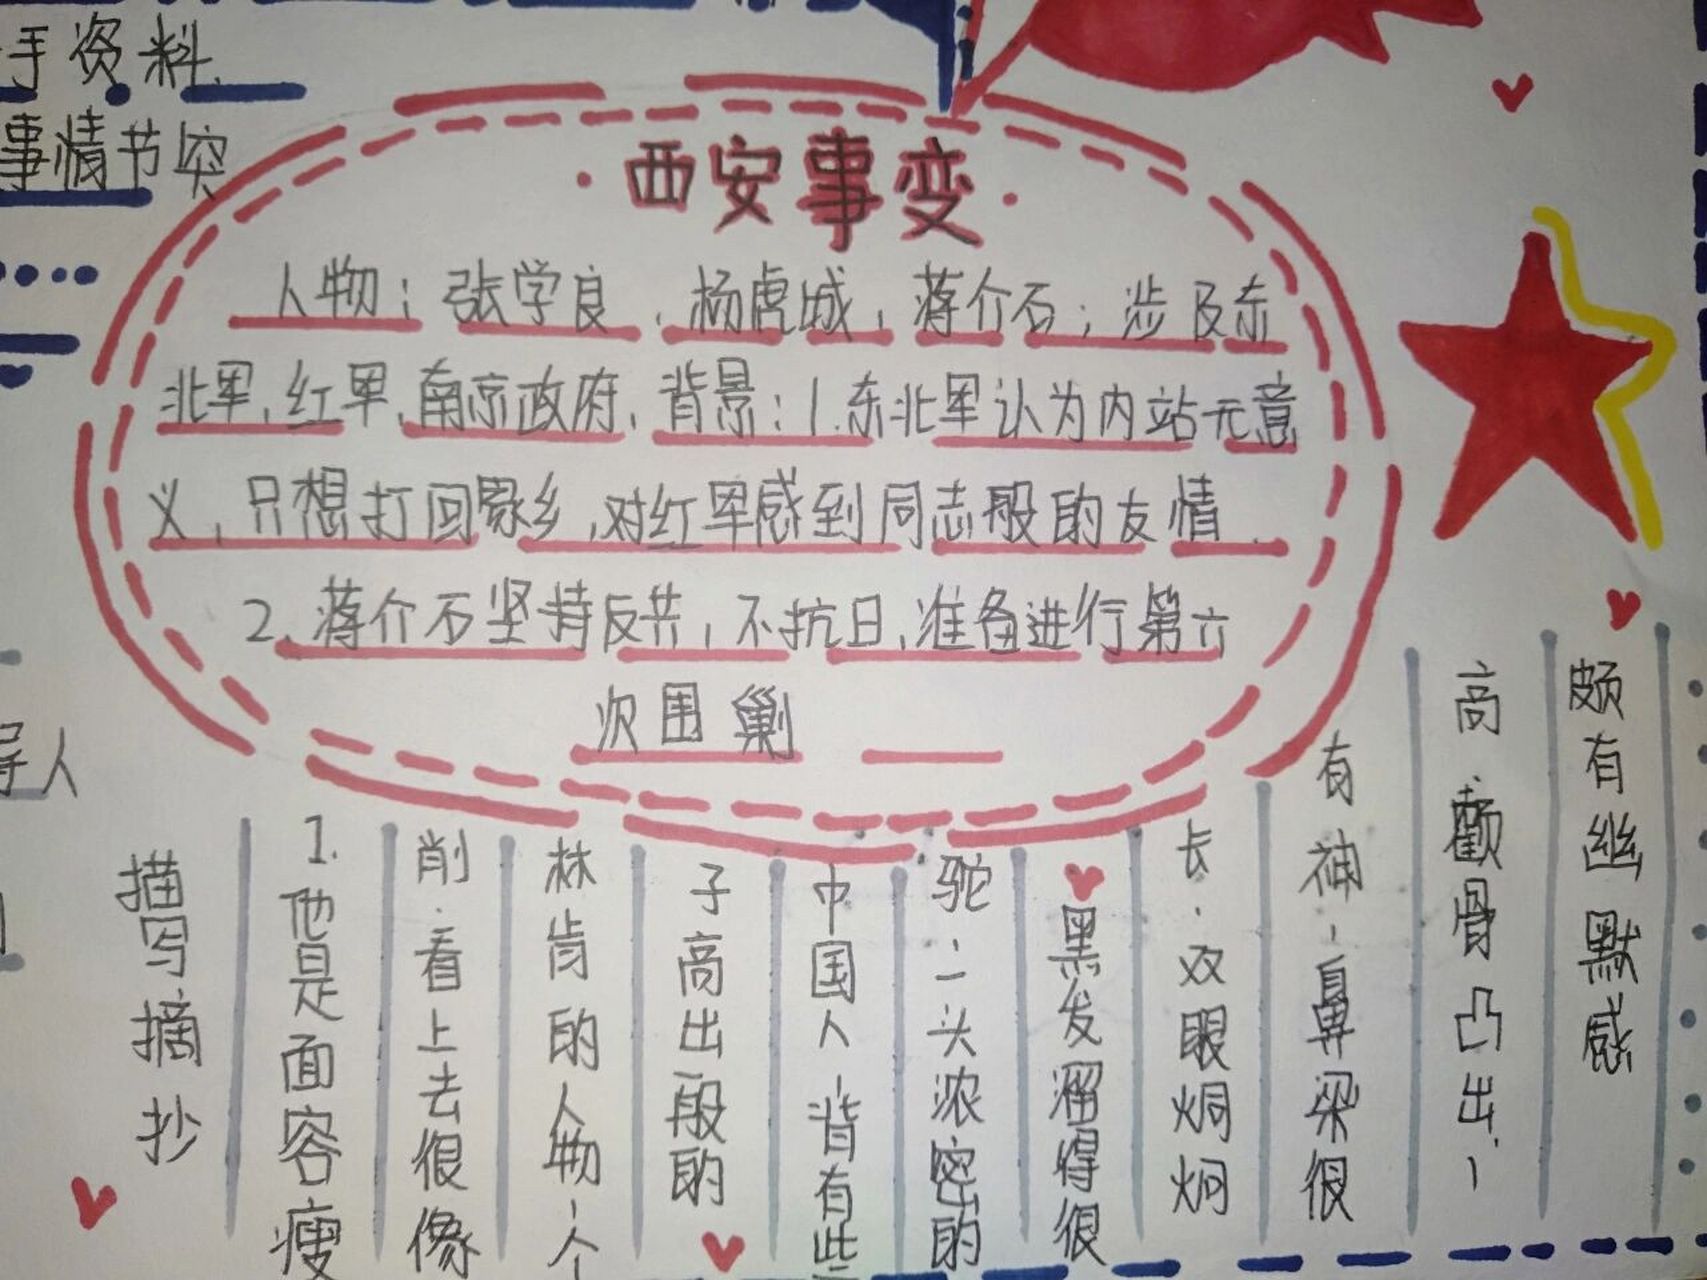 手资料.
事情节突
·西安事变·
人物：张学良，杨虎城，蒋介石；涉及东
北军,红军,南京政府,背景：1.东北军认为内站无意
义，只想打回家乡,对红军感到同志般的友情.
2.蒋介石坚持反共，不抗日,准备进行第六
次围剿
导人
描写摘抄
1.他是面容瘦
削.看上去很像
林肯的人物,个
子高出一般的
中国人,背有些
驼,一头浓密的
黑发溜得很
长.双眼炯炯
有神,鼻梁很
高.颧骨凸出,
颇有幽默感